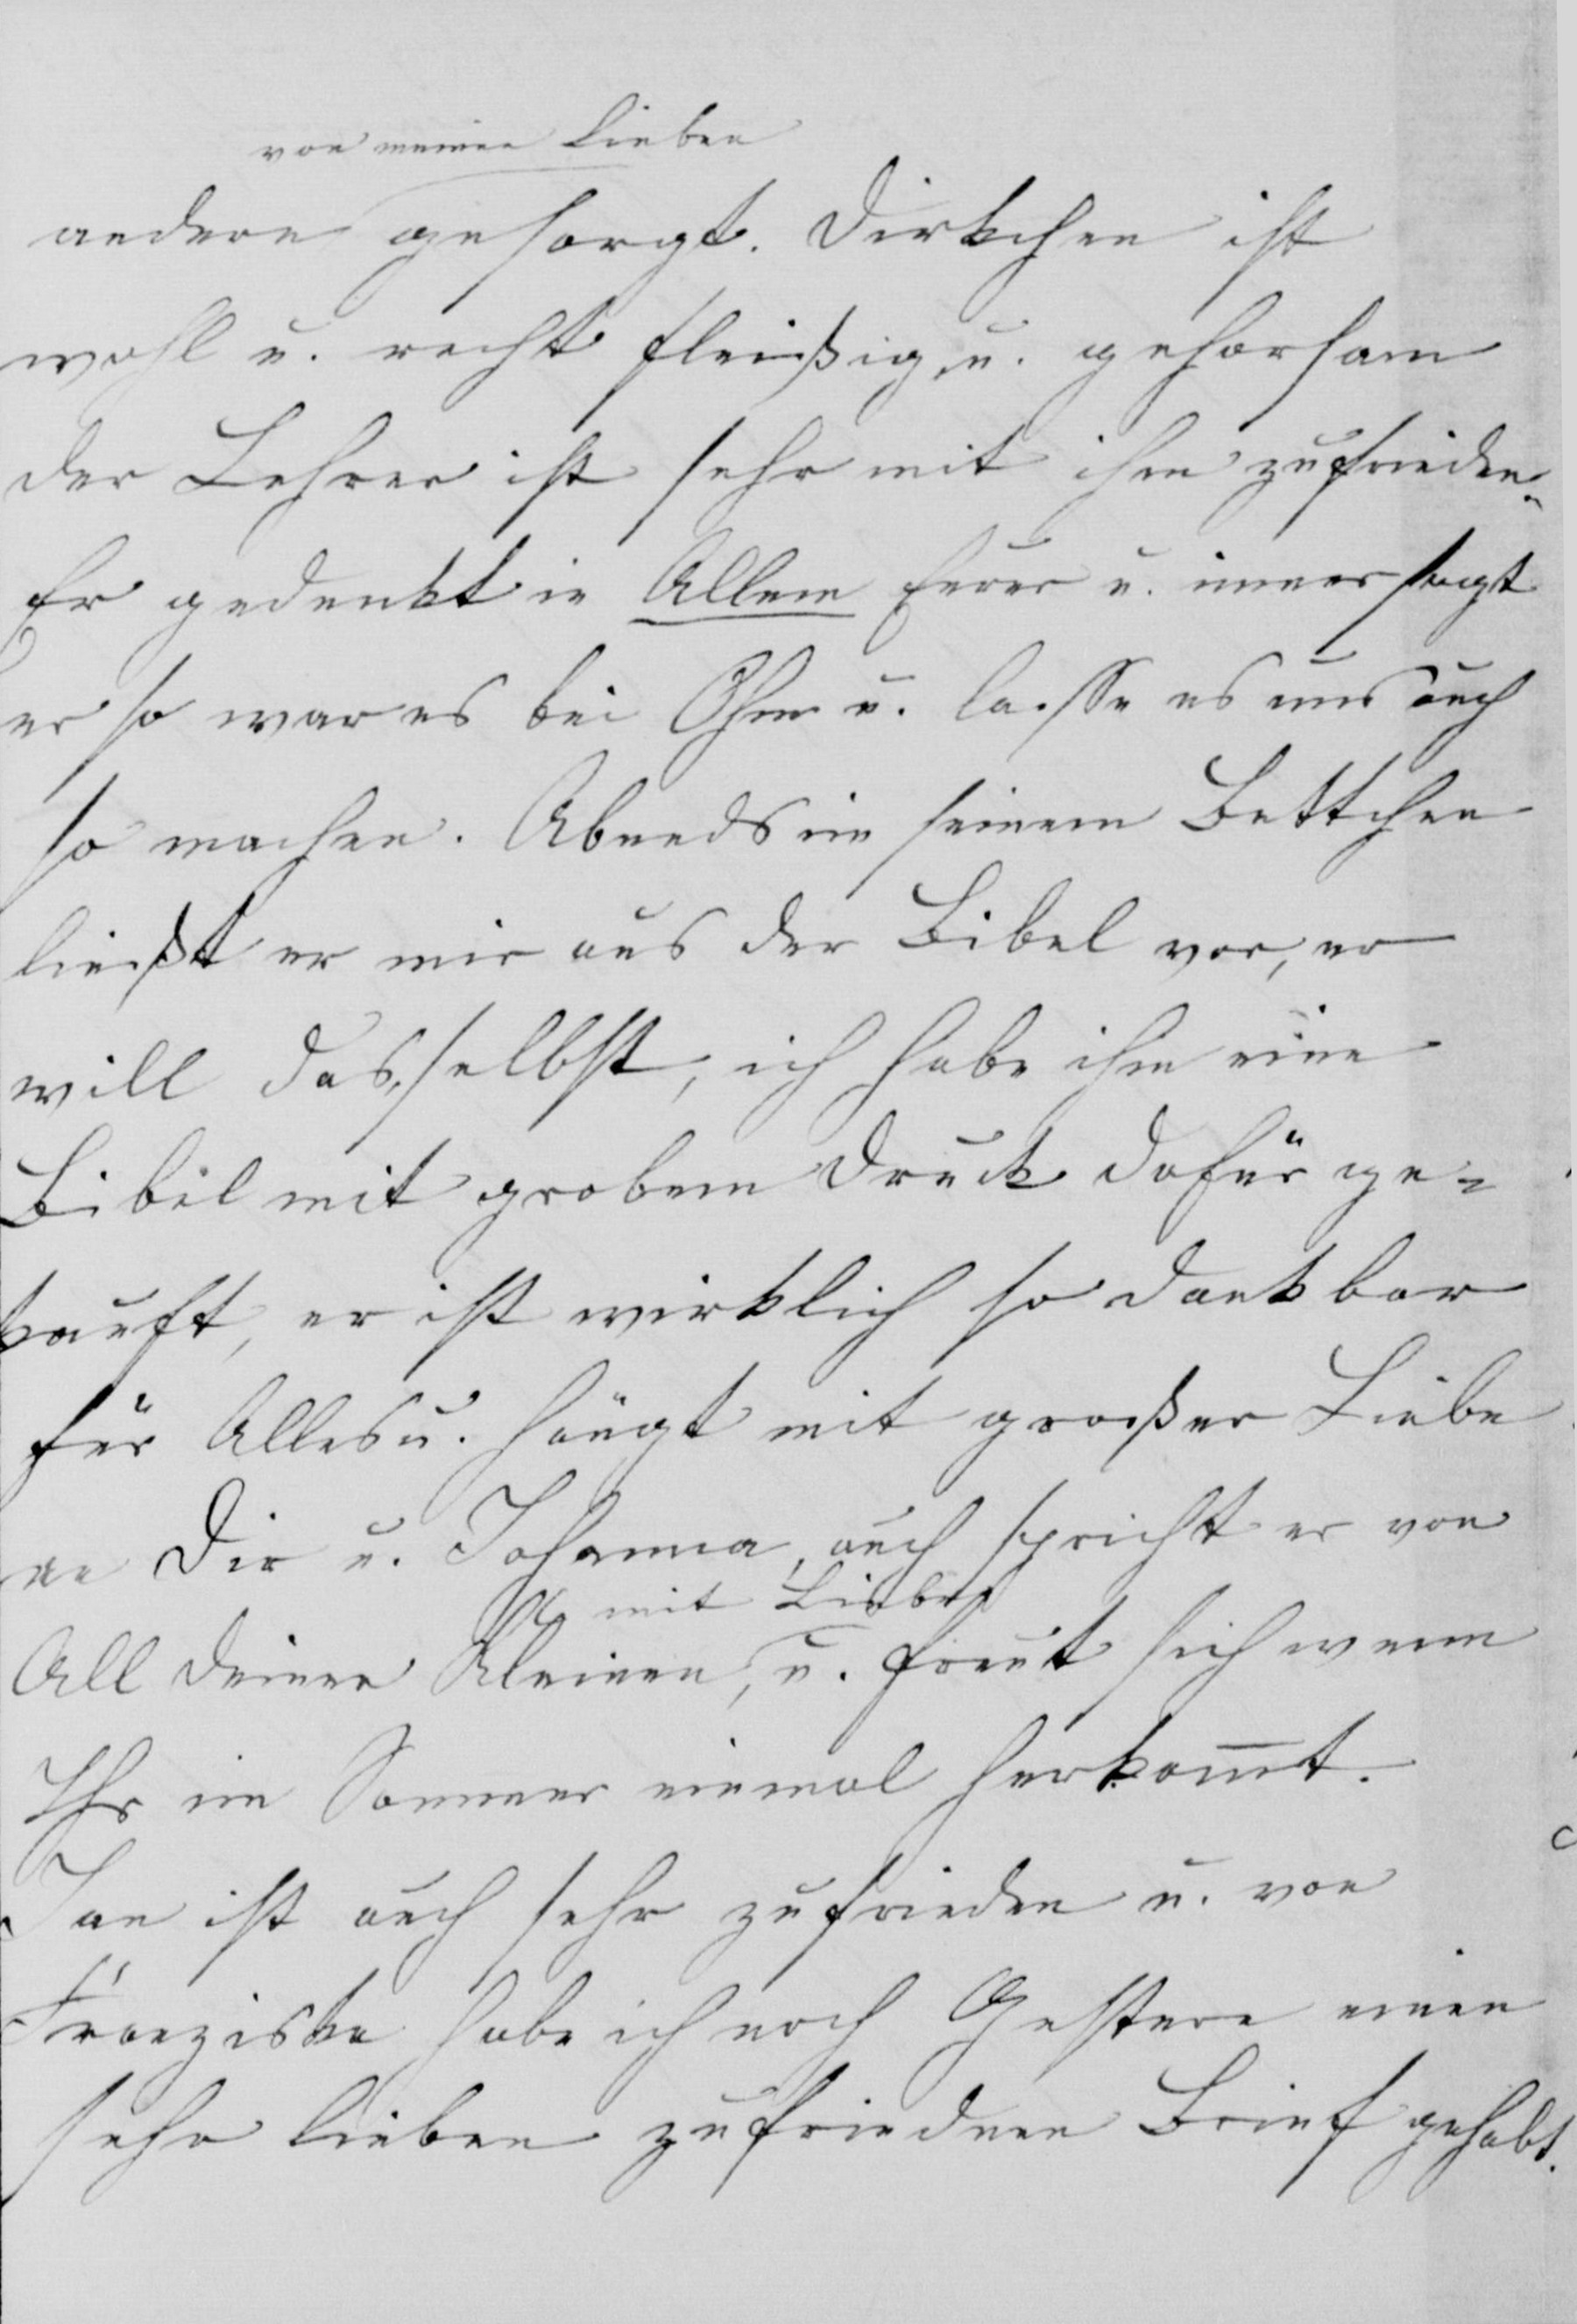 von meinen Lieben
andern gesorgt. Dirkchen ist
wohl u. recht fleißig u. gehorsam
der Lehrer ist sehr mit ihm zufrieden.
Er gedenkt in Allem Eurer u. immer sagt
er so war es bei Ohm u. lasse es uns auch
so machen. Abends in seinem Bettchen
ließt er mir aus der Bibel vor, er
will das selbst, ich habe ihm eine
Bibel mit grobem Druck dafür ge-
kauft, er ist wirklich so dankbar
für Alles u. hängt mit großer Liebe
an Dir u. Johanna, auch spricht er von
mit Liebe
All Deinen Kleinen, u. freut sich wenn
Ihr im Sommer einmal herkom̅t.
Jan ist auch sehr zufrieden u. von
Franziska habe ich noch Gestern einen
sehr lieben zufriednen Brief gehabt.